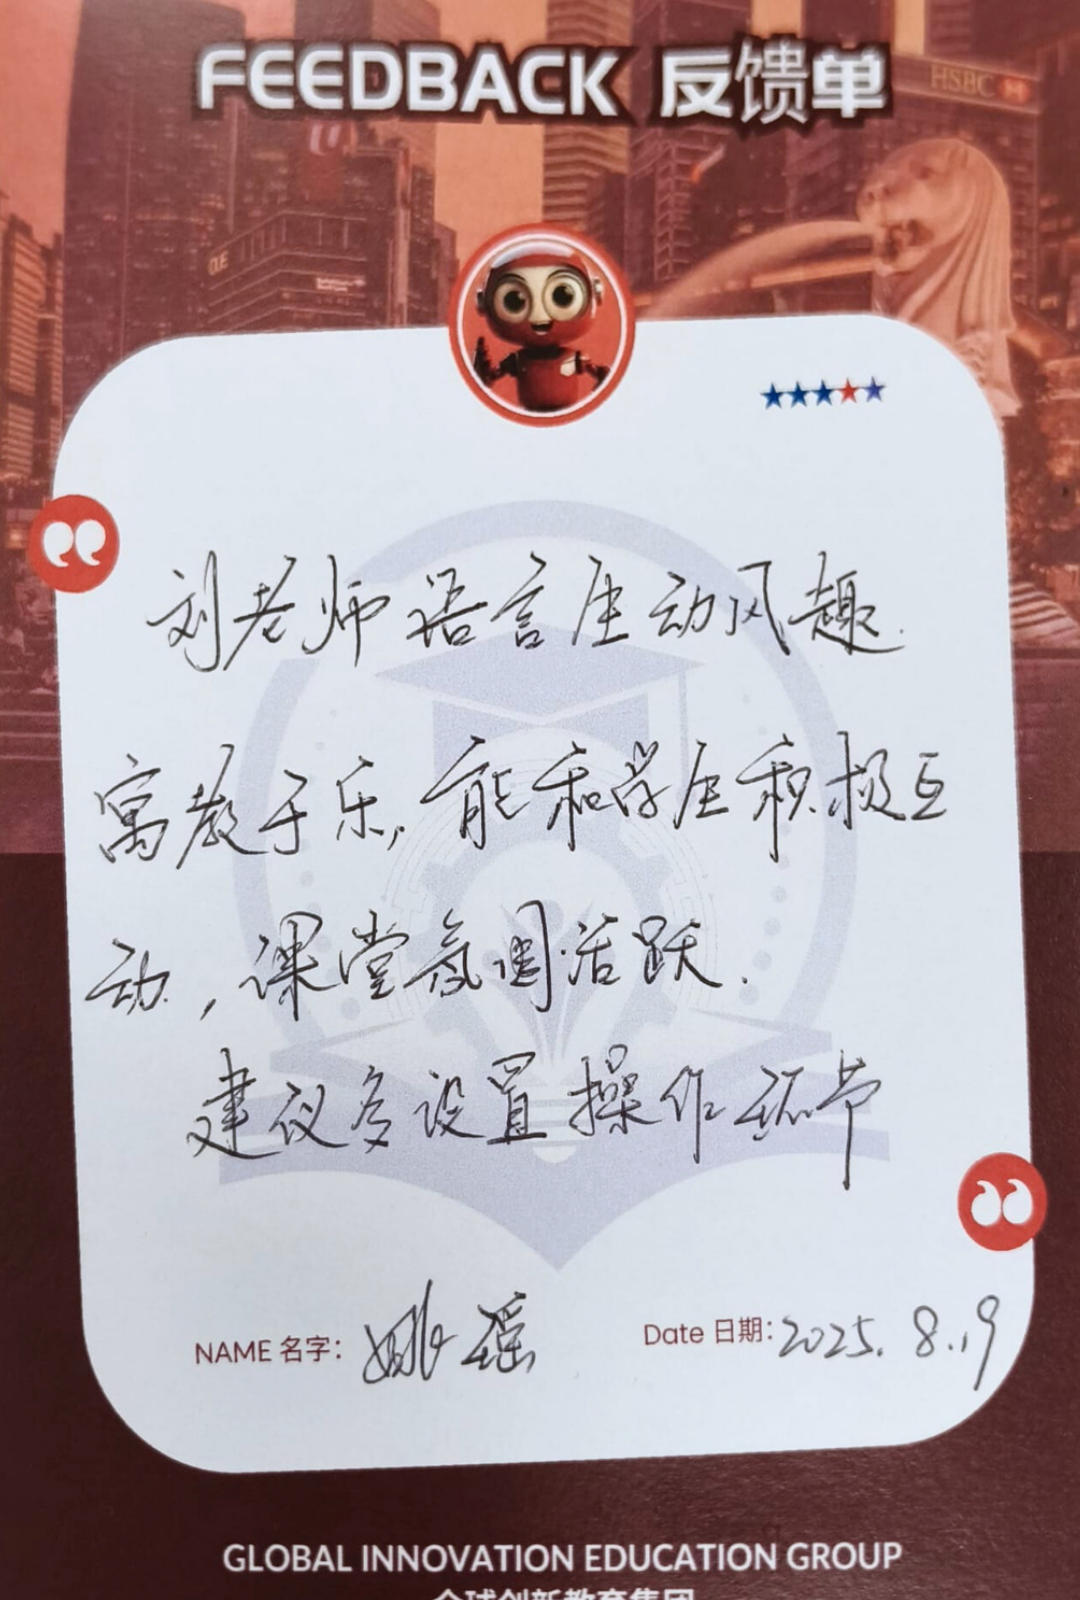 FEEDBACK 反馈单
HSBC
OUE
刘老师语言生动风趣.
寓教于乐,能和学生积极互
动,课堂氛围活跃.
建议多设置操作环节
NAME 名字: 姚瑶
Date 日期: 2025.8.19
GLOBAL INNOVATION EDUCATION GROUP
全球创新教育集团